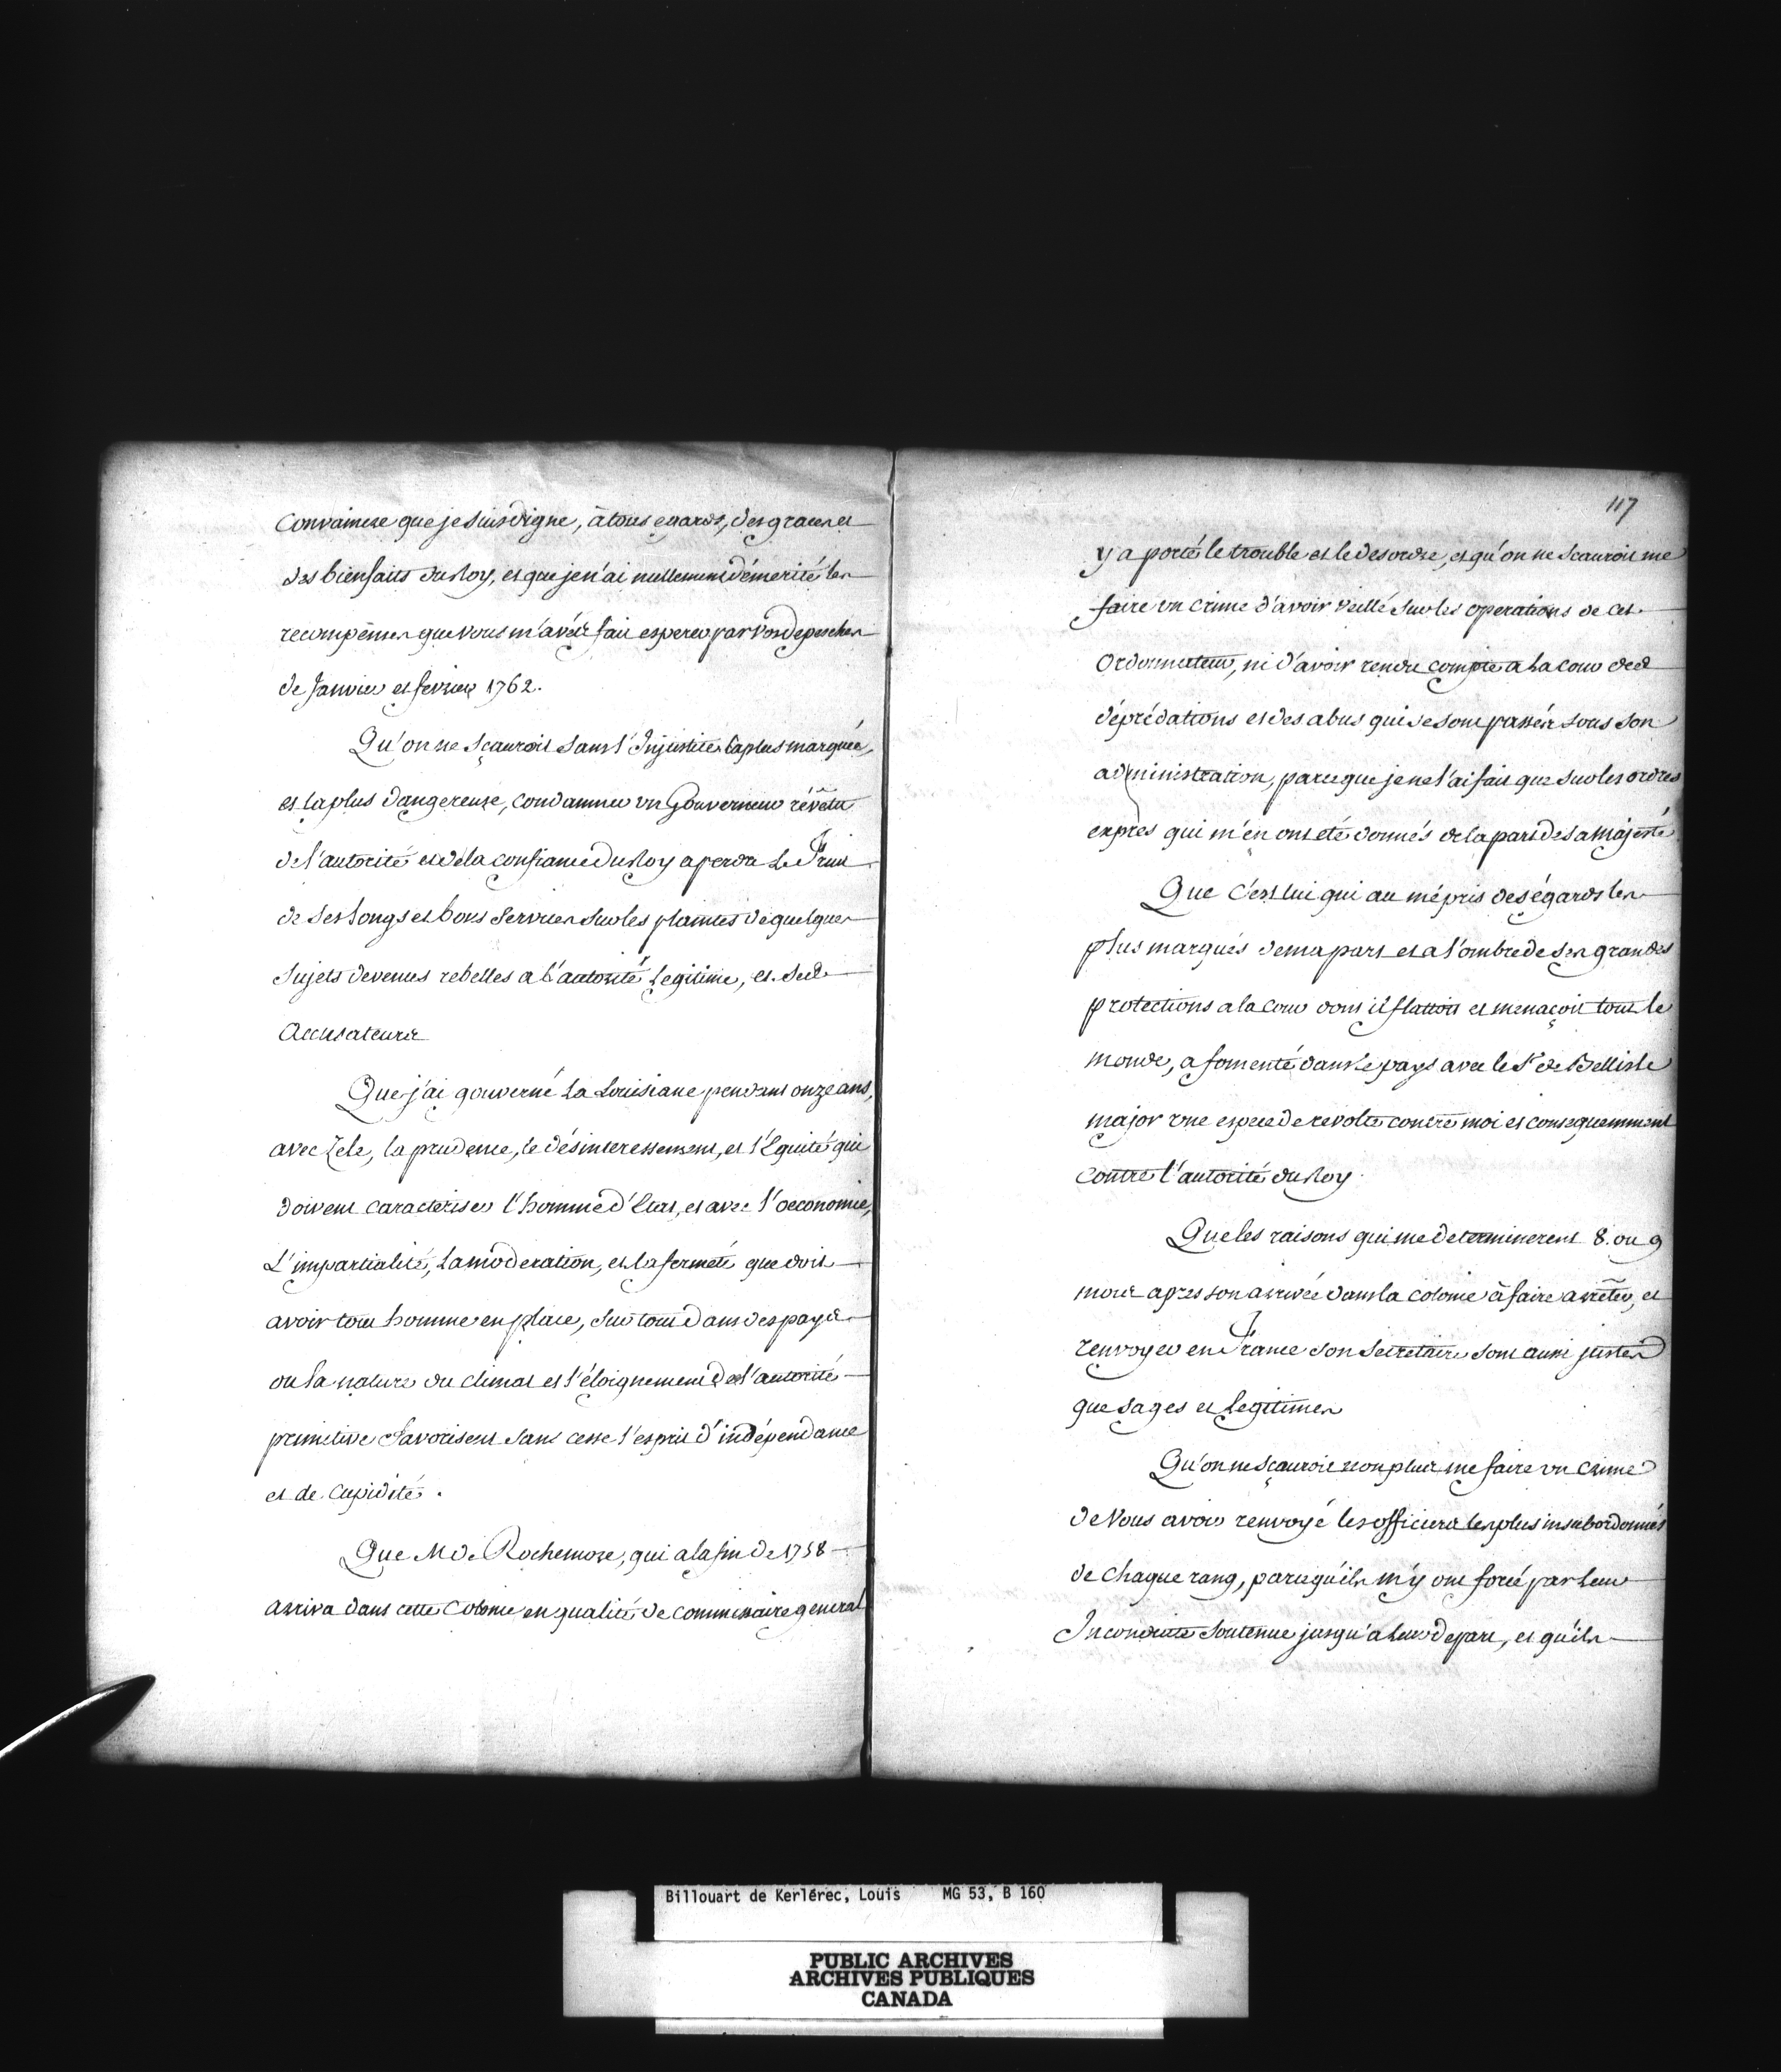 Convaincre que je suis digne, à tous egards, des graces et
des bienfaits du Roy, et que je n'ai nullement démerité les
recompenses que vous m'avéz fait esperer par vos depesches
de Janvier et fevrier 1762.
Qu'on ne sçauroit sans l'Injustice la plus marquée,
et la plus dangereuse, condamner un Gouverneur révêtu
de l'autorité et de la confiance du Roy a perdre le Fruit
de ses longs et bons services sur les plaintes de quelques
sujets devenus rebelles a l'autorité legitime, et ses
accusateurs
Que j'ai gouverné la Louisiane pendant onze ans,
avec Zele, la prudence, le désinteressement, et l'Equité qui
doivent caracteriser l'homme d'Etat, et avec l'oeconomie,
L'impartialité, la moderation, et la fermeté que doit
avoir tout homme en place, sur tout dans des pays
ou la nature du climat et l'éloignement de l'autorité
primitive favorisent sans cesse l'esprit d'indépendance
et de Cupidité.
Que M de Rochemore, qui a la fin de 1758
arriva dans cette Colonie en qualité de commissaire general
117
y a porté le trouble et le desordre, et qu'on ne scauroit me
faire un crime d'avoir veillé sur les operations de cet
Ordonnateur, ni d'avoir rendu compte a la cour des
déprédations et des abus qui se sont passés sous son
administration, parce que je ne l'ai fait que sur les ordres
exprès qui m'en ont eté donnés de la part de sa majesté
Que c'est lui qui au mépris des égards les
plus marqués de ma part et a l'ombre de ses grandes
protections a la cour dont il flattoit et menaçoit tout le
monde, a fomenté dans le pays avec le Sr de Bellisle
major une espece de revolte contre moi et consequemment
contre l'autorité du Roy.
Que les raisons qui me determinerent 8. ou 9
mois apres son arrivée dans la colonie à faire arrêter, et
renvoyer en France son secretaire sont aussi justes
que sages et legitimes
Qu'on ne sçauroit non plus me faire un crime
de Vous avoir renvoyé les officiers les plus insubordonnés
de chaque rang, parce qu'ils m'y ont forcé par leur
Inconduite soutenue jusqu'a leur depart, et qu'ils
Billouart de Kerlérec, Louis MG 53, B 160
PUBLIC ARCHIVES
ARCHIVES PUBLIQUES
CANADA